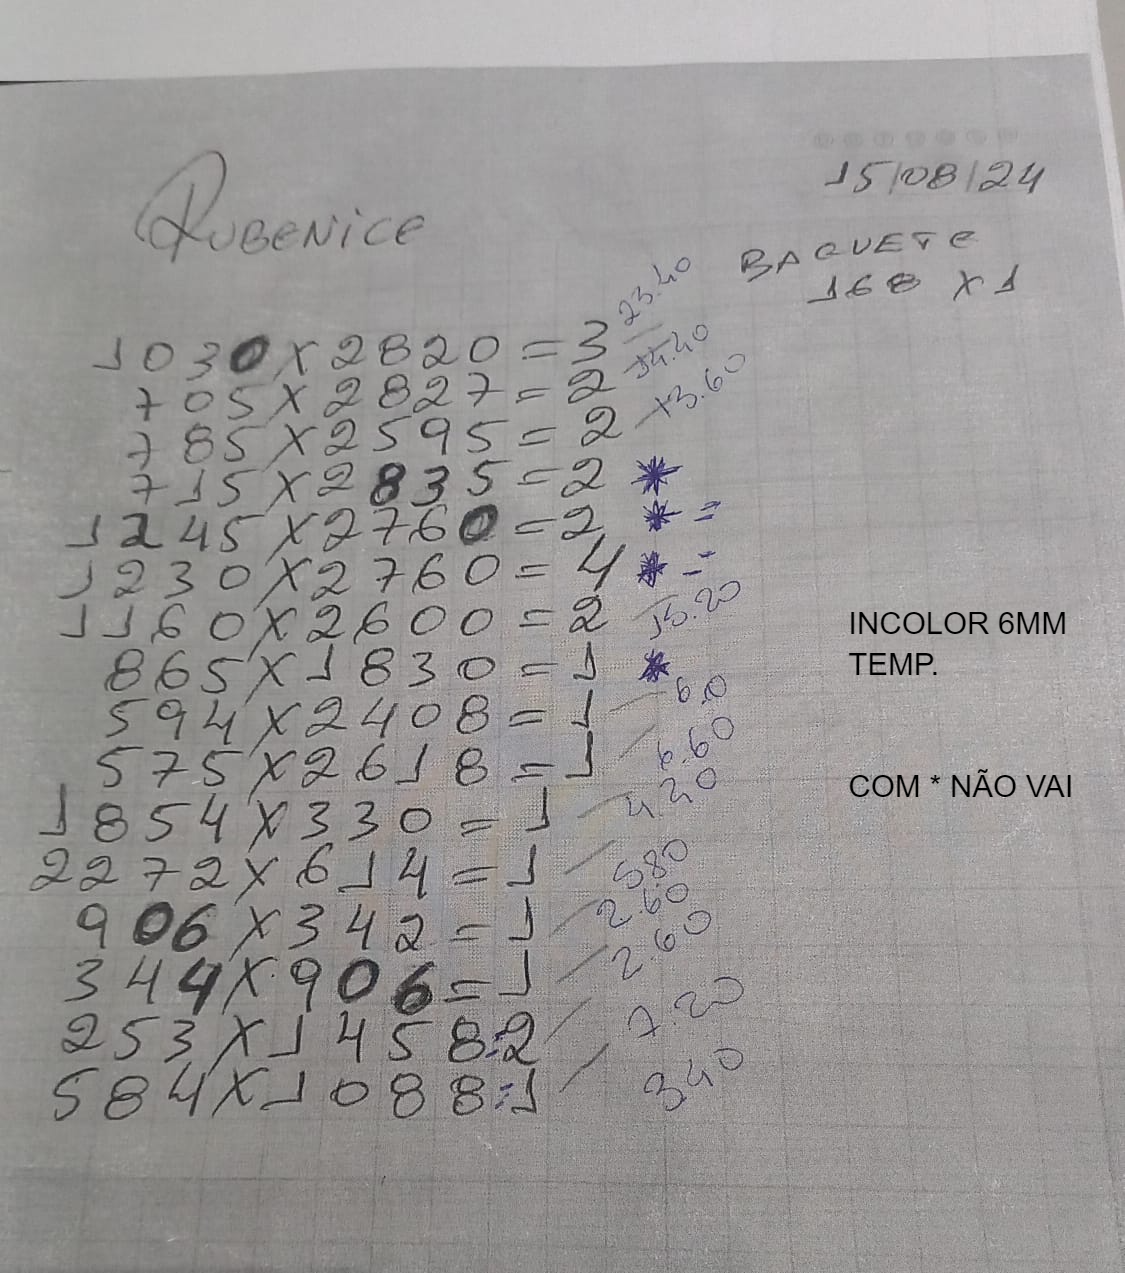 15/08/24
RUBENICE
BAQUETE
168 X 1
1030 X 2820 = 3 23.40
705 X 2827 = 2 14.40
785 X 2595 = 2 13.60
715 X 2835 = 2 *
1245 X 2760 = 2 * =
1230 X 2760 = 4 * --
1160 X 2600 = 2 15.20
865 X 1830 = 1 *
594 X 2408 = 1 6.0
575 X 2618 = 1 6.60
1854 X 330 = 1 4.40
2272 X 614 = 1 5.80
906 X 342 = 1 2.60
344 X 906 = 1 2.60
253 X 1458 = 2 7.20
584 X 1088 = 1 3.40
INCOLOR 6MM
TEMP.
COM * NÃO VAI